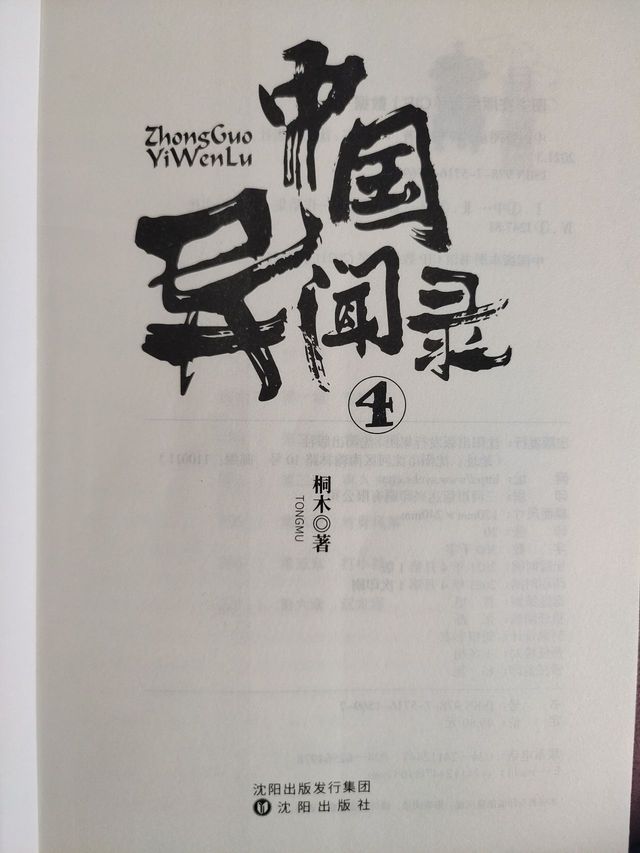 ZhongGuo
YiWenLu
中国
异闻录
4
桐木◎著
TONGMU
沈阳出版发行集团
沈阳出版社